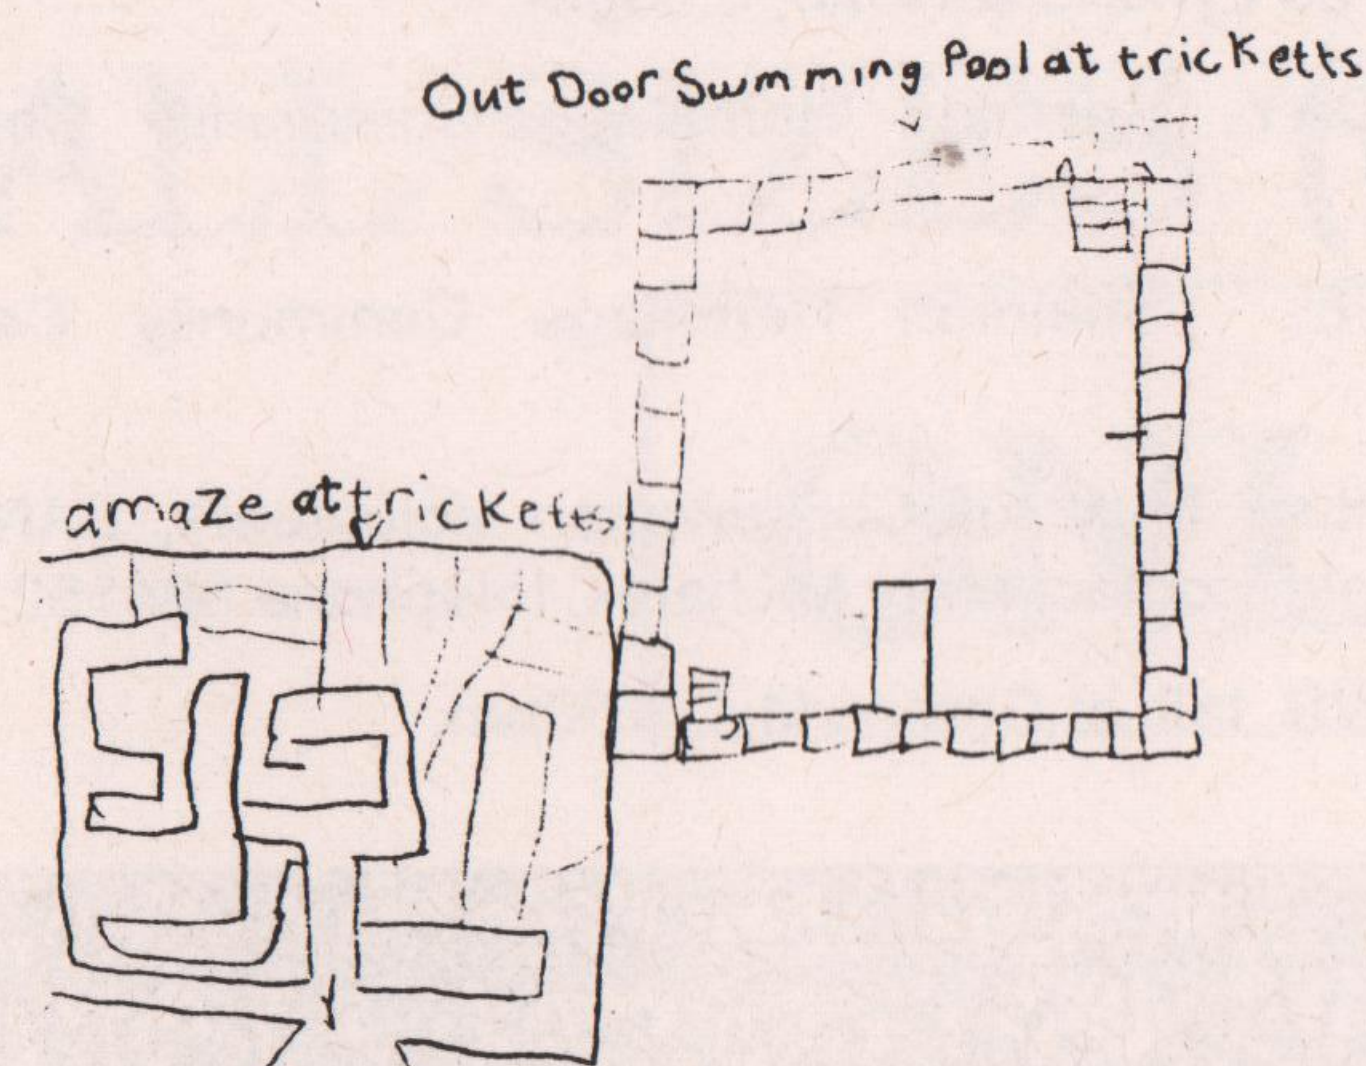 Out Door Swmming Pool at tricketts
amaze at tricketts